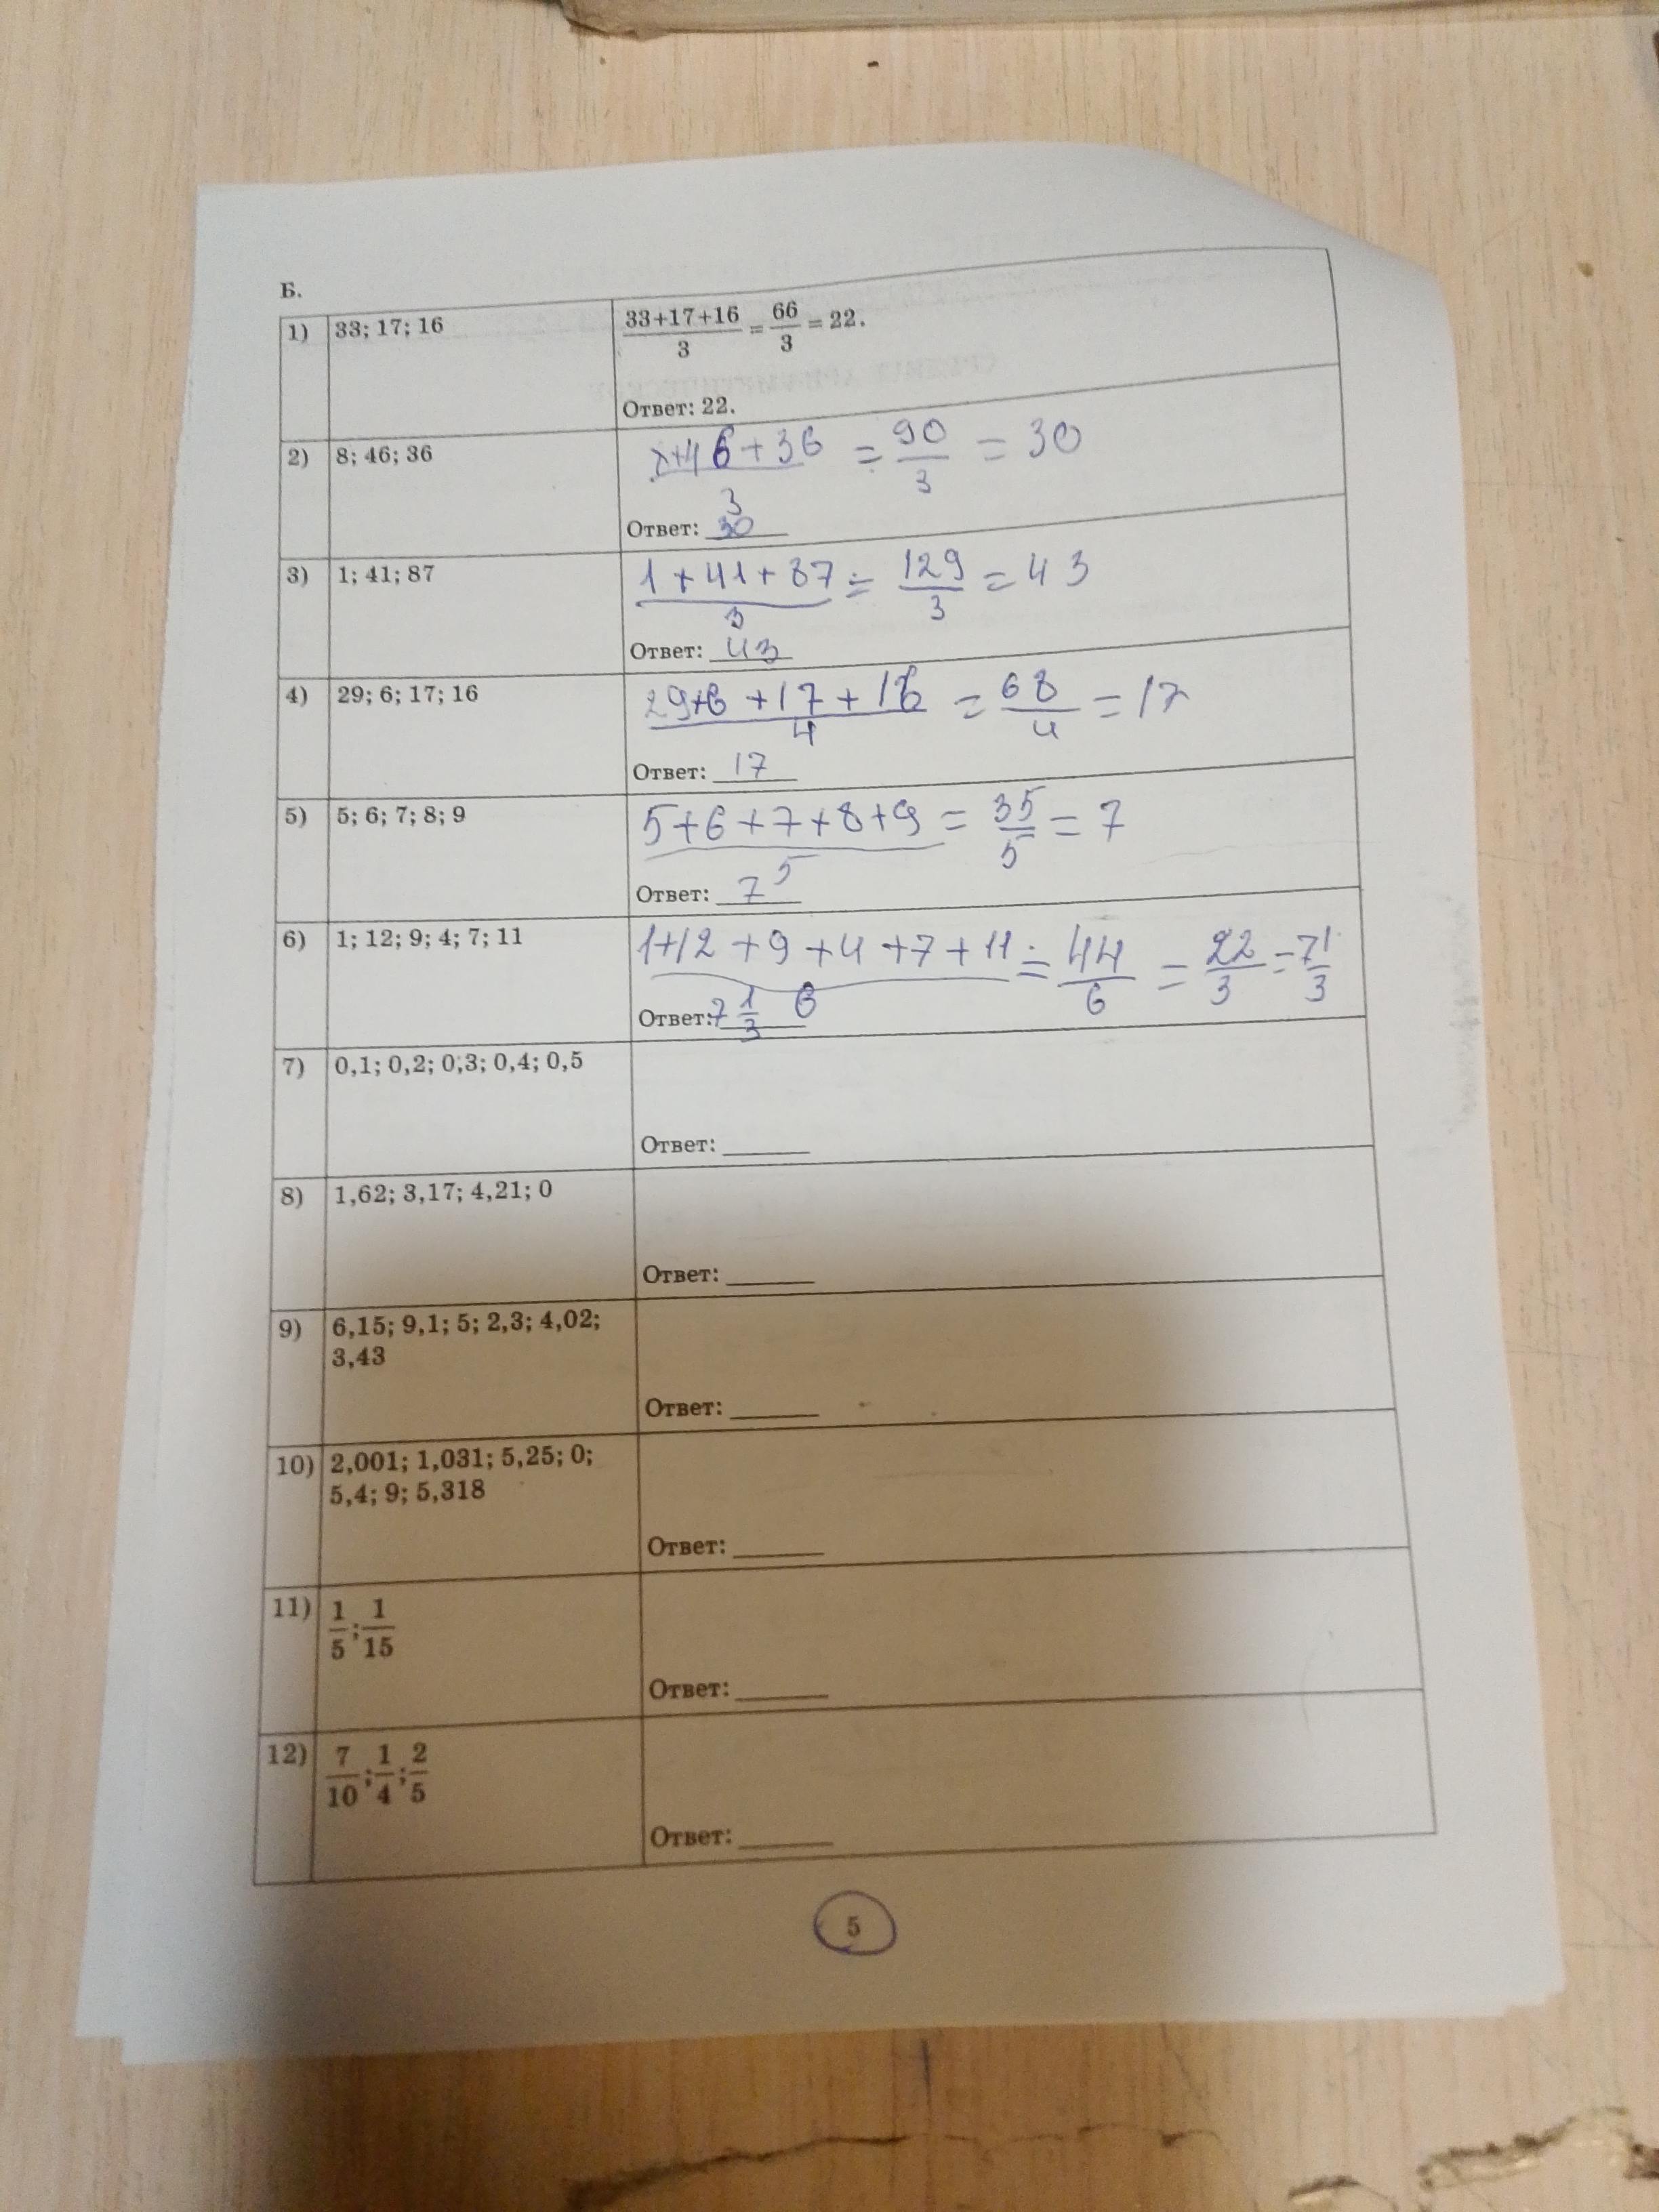 Б.
1) 33; 17; 16
33+17+16/3 = 66/3 = 22.
Ответ: 22.
2) 8; 46; 36
+46+36/3 = 90/3 = 30
Ответ: 30
3) 1; 41; 87
1+41+87/3 = 129/3 = 43
Ответ: 43
4) 29; 6; 17; 16
29+6+17+16/4 = 68/4 = 17
Ответ: 17
5) 5; 6; 7; 8; 9
5+6+7+8+9/5 = 35/5 = 7
Ответ: 7
6) 1; 12; 9; 4; 7; 11
1+12+9+4+7+11/6 = 44/6 = 22/3 = 7 1/3
Ответ: 7 1/3
7) 0,1; 0,2; 0,3; 0,4; 0,5
Ответ: ______
8) 1,62; 3,17; 4,21; 0
Ответ: ______
9) 6,15; 9,1; 5; 2,3; 4,02;
3,43
Ответ: ______
10) 2,001; 1,031; 5,25; 0;
5,4; 9; 5,318
Ответ: ______
11) 1/5; 1/15
Ответ: ______
12) 7/10; 1/4; 2/5
Ответ: ______
5